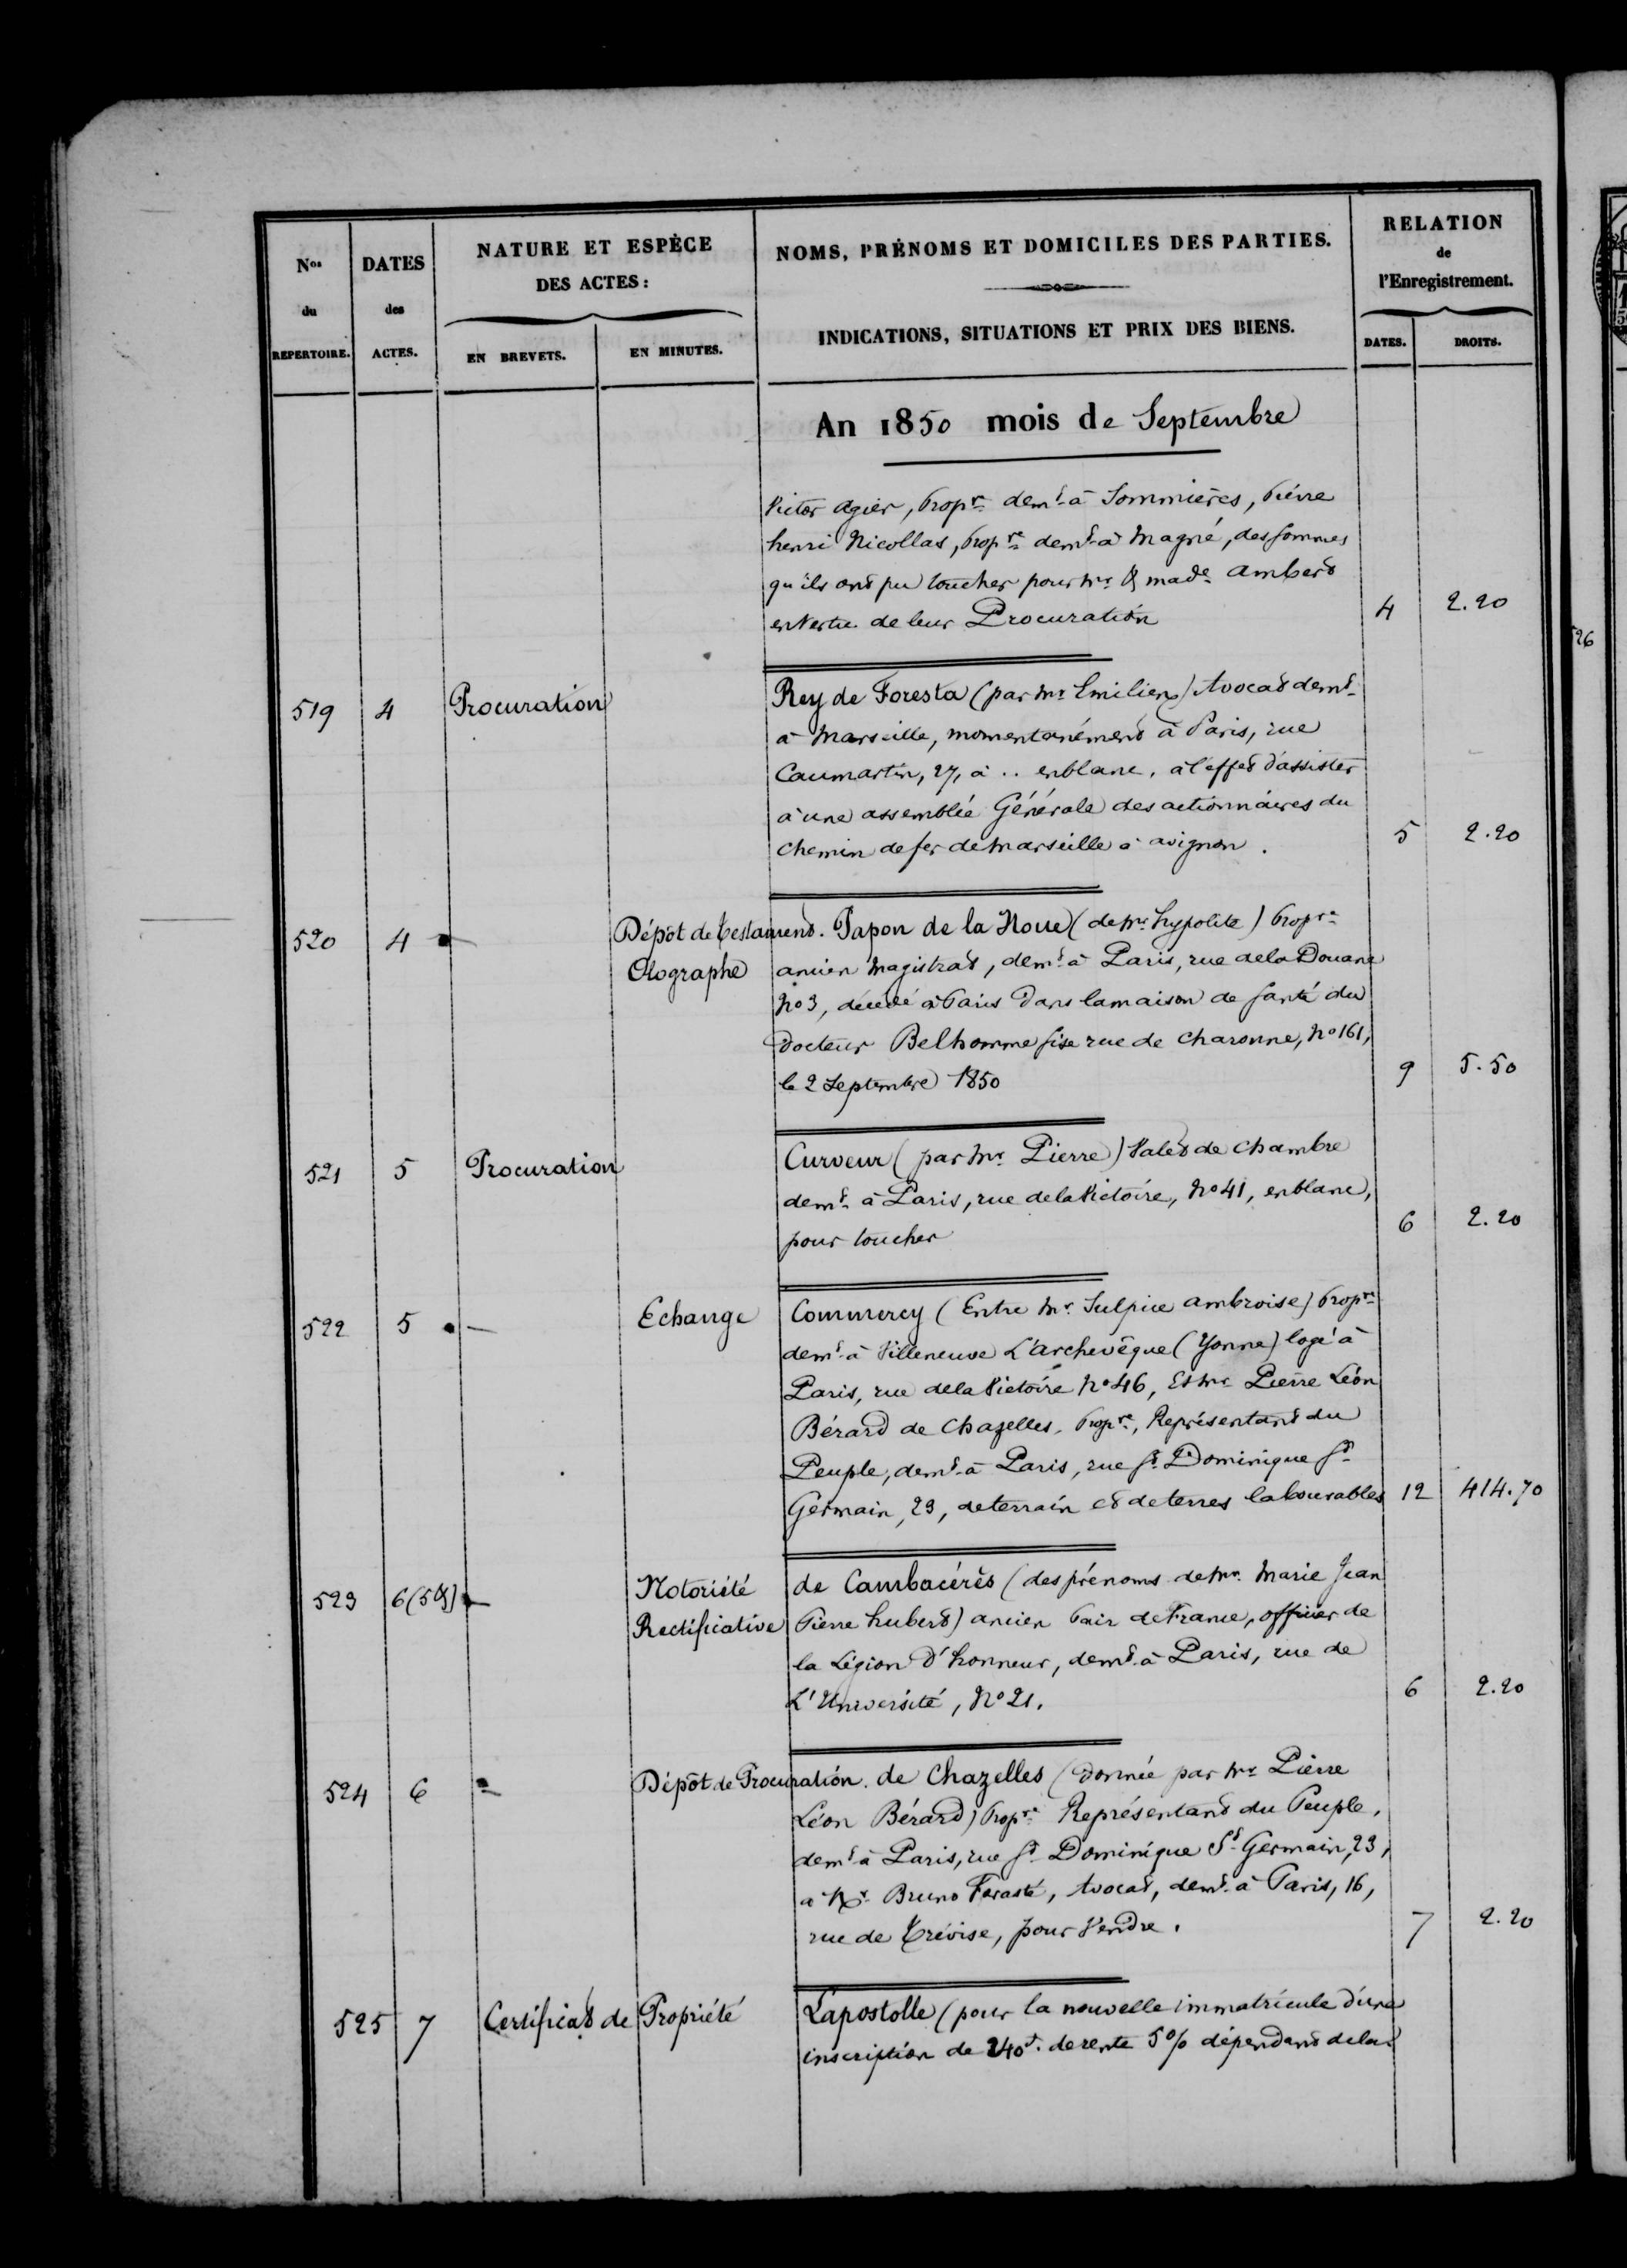 Nos du REPERTOIRE. DATES des ACTES. NATURE ET ESPÈCE DES ACTES: EN BREVETS. EN MINUTES. NOMS, PRÉNOMS ET DOMICILES DES PARTIES. INDICATIONS, SITUATIONS ET PRIX DES BIENS. RELATION de l'Enregistrement. DATES. DROITS.
An 1850 mois de Septembre
Victor Agier, Propre demt à Sommières, Pierre
henri Nicollas, Propre demt à Magné, des sommes
qu'ils ont pu toucher pour Mr & made Ambert
en vertu de leur Procuration 4 2.20
519 4 Procuration Rey de Foresta (par Mr Emilien) Avocat demt
à Marseille, momentanément à Paris, rue
Caumartin, 27, à .. en blanc, à l'effet d'assister
à une assemblée Générale des actionnaires du
chemin de fer de Marseille à avignon. 5 2.20
520 4 — Dépôt de testament. Papon de la Noue (de Mr hypolite) Propre
Olographe ancien Magistrat, demt à Paris, rue de la Douane
No 3, décédé à Paris dans la maison de santé du
Docteur Belhomme sise rue de charonne, No 161,
le 2 Septembre 1850 9 5.50
521 5 Procuration Curveur (par Mr Pierre) Valet de chambre
demt à Paris, rue de la Victoire, No 41, en blanc,
pour toucher 6 2.20
522 5 — Echange Commercy (Entre Mr Sulpice ambroise) Propre
demt à Villeneuve L'archevêque (Yonne) logé à
Paris, rue de la Victoire No 46, Et Mr Pierre Léon
Bérard de Chazelles, Propre, Représentant du
Peuple, demt à Paris, rue St Dominique St
Germain, 23, de terrain et de terres labourables 12 414.70
523 6 (5 &) — Notoriété de Cambacérès (des prénoms de Mr Marie Jean
Rectificative Pierre hubert) ancien Pair de France, officier de
la Légion d'honneur, demt à Paris, rue de
L'Université, No 21. 6 2.20
524 6 — Dépôt de Procuration. de Chazelles (donnée par Mr Pierre
Léon Bérard) Propre Représentant du Peuple,
demt à Paris, rue St Dominique St Germain, 23,
à Mr Bruno Ferasté, Avocat, demt à Paris, 16,
rue de Trévise, pour Vendre. 7 2.20
525 7 Certificat de Propriété Lapostolle (pour la nouvelle immatricule d'une
inscription de 240f. de rente 5% dépendant de la
526